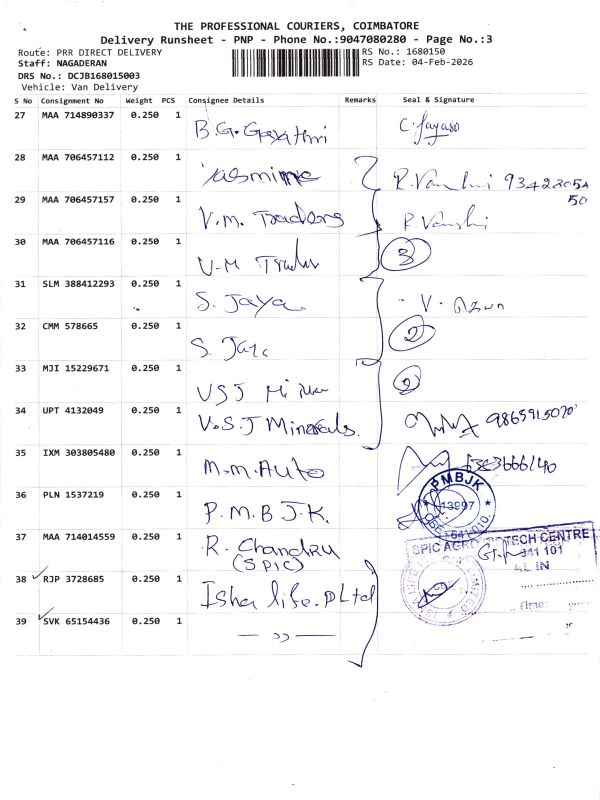 THE PROFESSIONAL COURIERS, COIMBATORE
Delivery Runsheet - PNP - Phone No.:9047080280 - Page No.:3
Route: PRR DIRECT DELIVERY
RS No.: 1680150
Staff: NAGADERAN
RS Date: 04-Feb-2026
DRS No.: DCJB168015003
Vehicle: Van Delivery
S No Consignment No Weight PCS Consignee Details Remarks Seal & Signature
27 MAA 714890337 0.250 1 B.G. Gayathri
28 MAA 706457112 0.250 1 Jasmine R. Vanshi 93422054
50
29 MAA 706457157 0.250 1 V.M. Traders R. Vanshi
30 MAA 706457116 0.250 1 V-M Trader 3
31 SLM 388412293 0.250 1 S. Jaya V.
32 CMM 578665 0.250 1 S. Jaya 2
33 MJI 15229671 0.250 1 VSJ 2
34 UPT 4132049 0.250 1 V.S.J Minerals.
35 IXM 303805480 0.250 1 M.M. Auto
36 PLN 1537219 0.250 1 P.M.B.J.K.
PMBJK
13997
CBE - 641 010.
37 MAA 714014559 0.250 1 R. Chandru
(SPIC)
SPIC AGRO BIOTECH CENTRE
641 101
38 RJP 3728685 0.250 1 Isha life. P Ltd
Time:
39 SVK 65154436 0.250 1 — ,, —